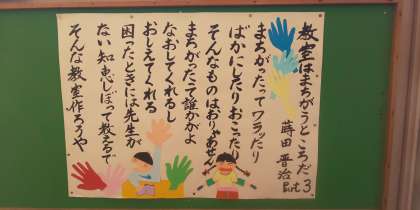 教室はまちがうところだ
蒔田晋治 Part3
まちがったってワラッたり
ばかにしたりおこったり
そんなものはおりゃあせん
まちがったって誰かがよ
なおしてくれるし
おしえてくれる
困ったときには先生が
ない知恵しぼって教えるで
そんな教室作ろうや